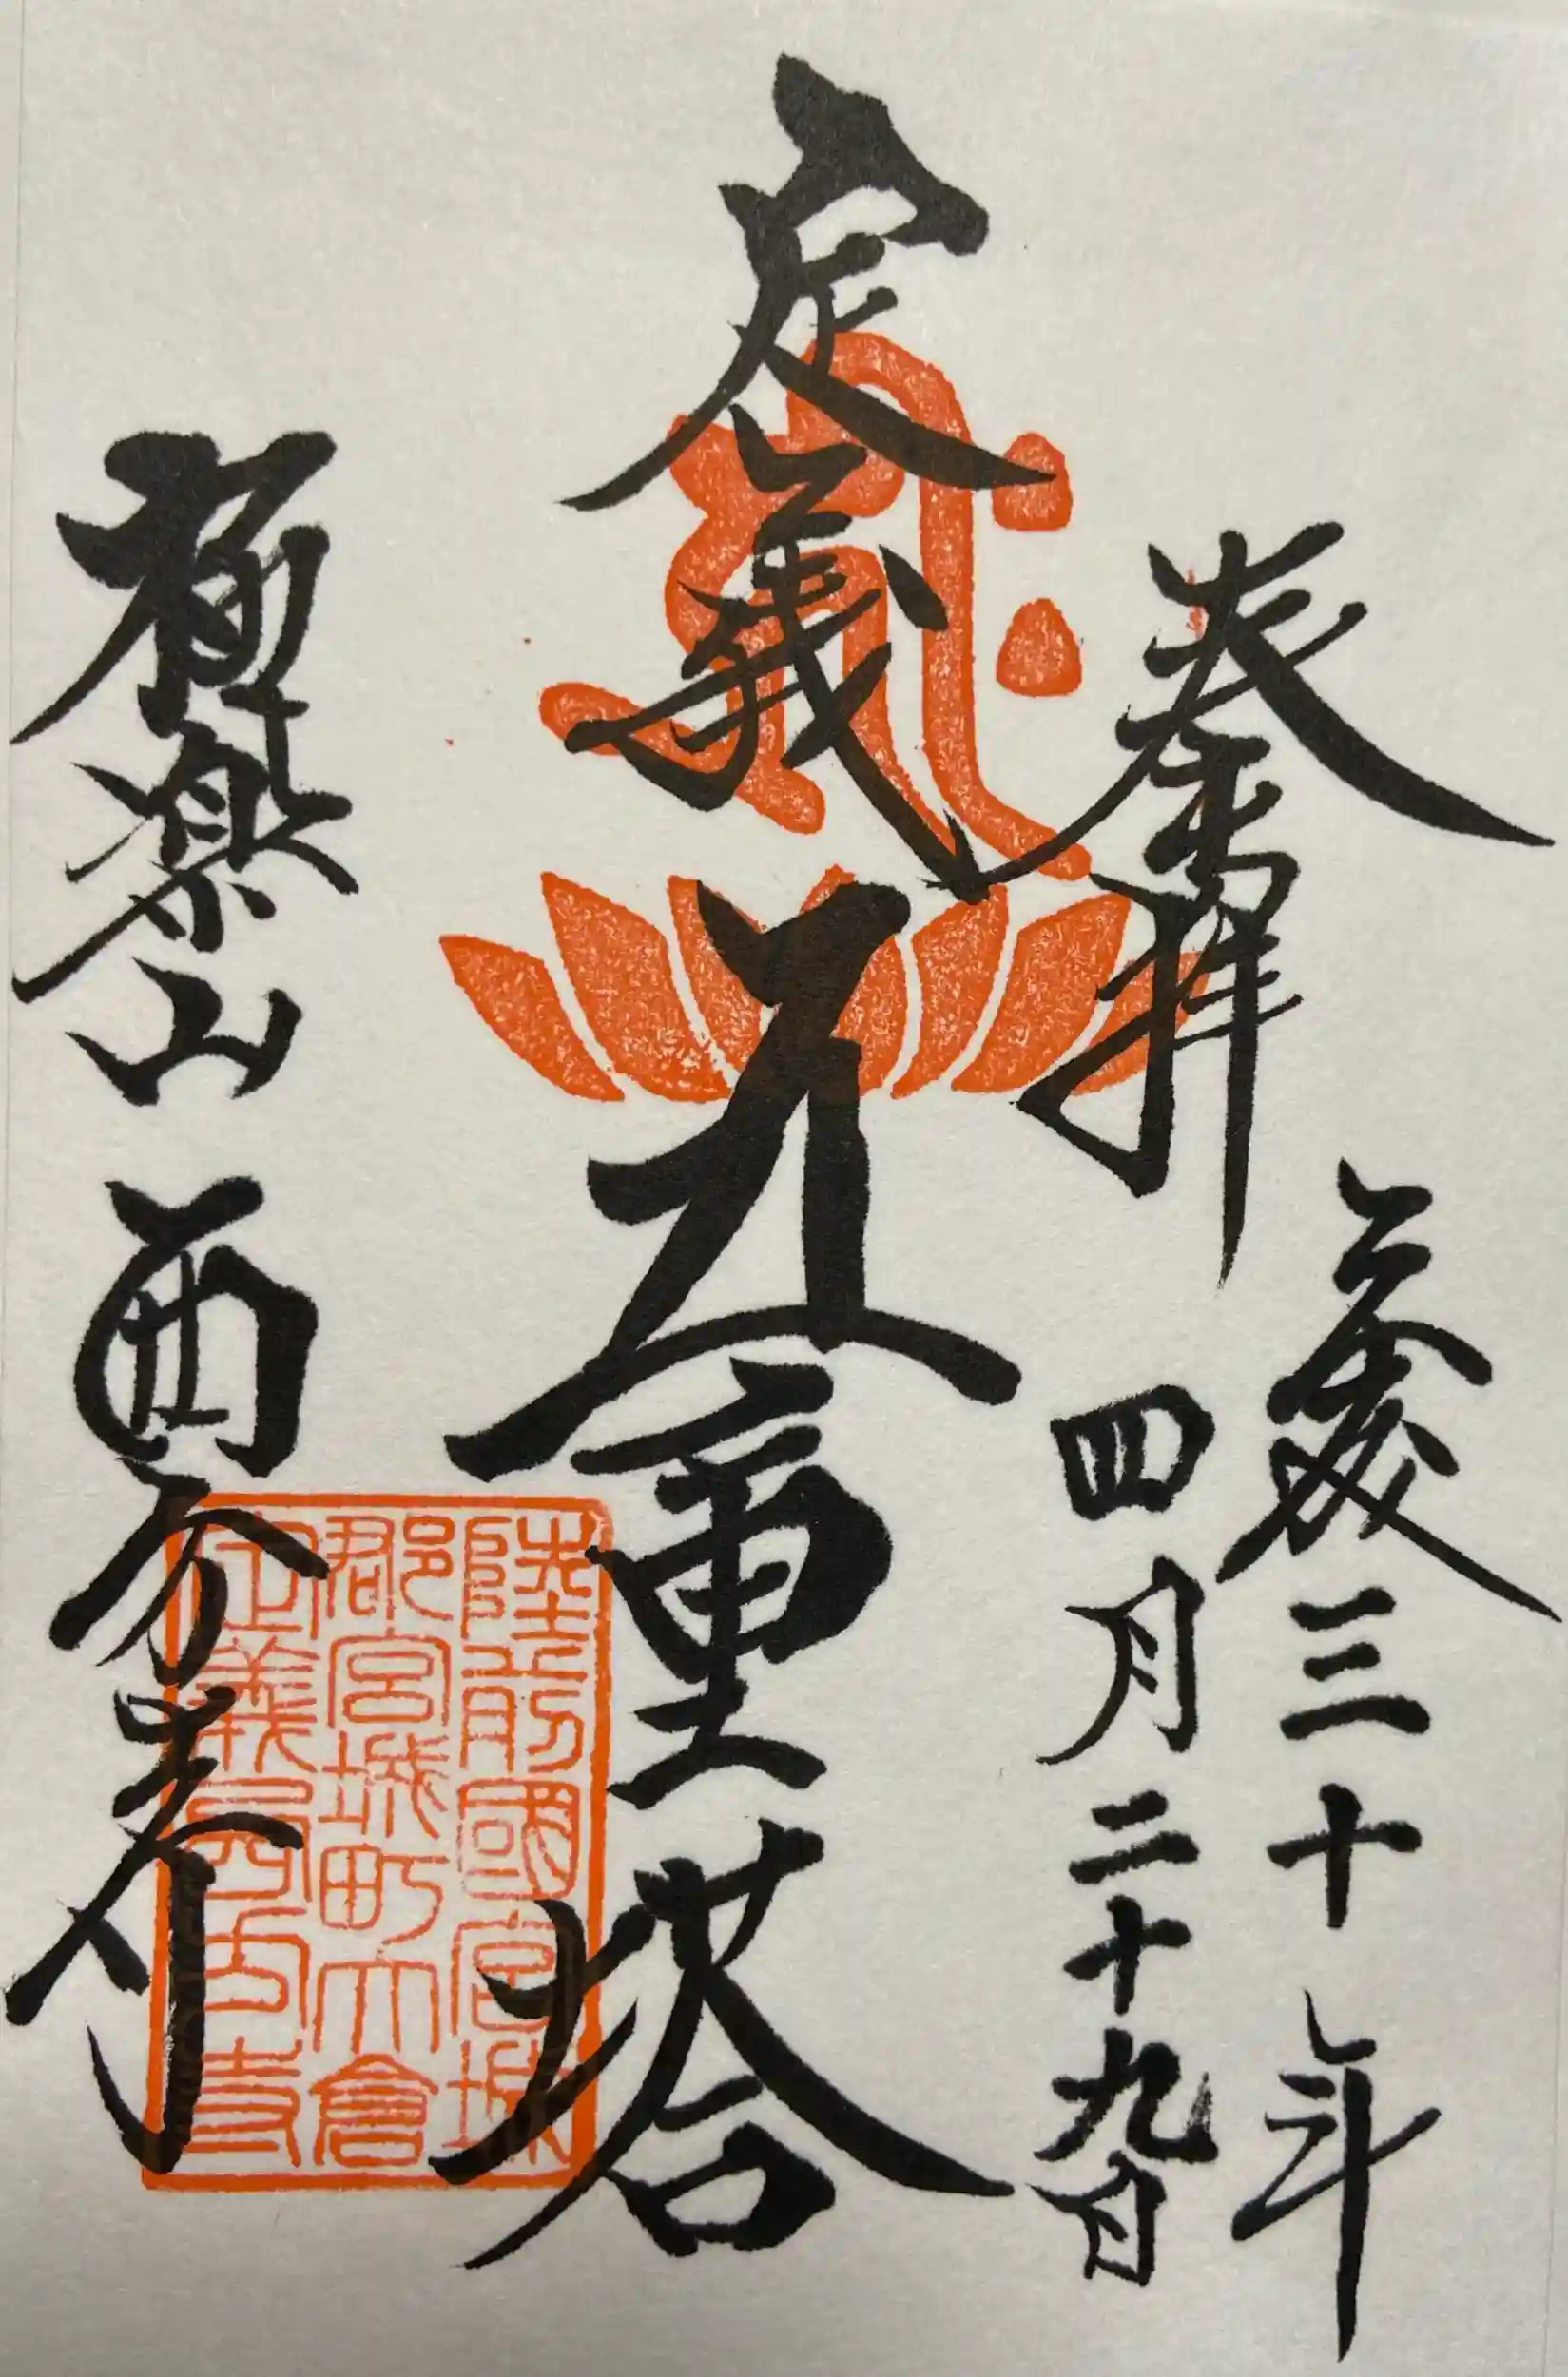 奉拝
平成三十年
四月二十九日
定義
五重塔
極楽山 西方寺
陸前國宮城
郡宮城町大倉
定義西方寺